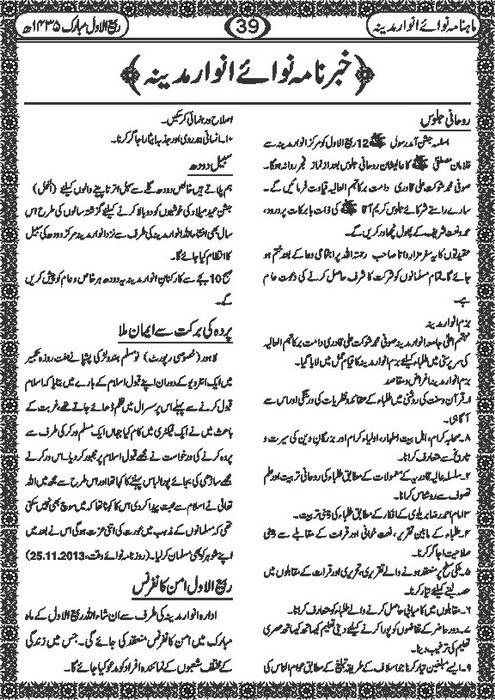 ماہنامہ نوائے انوار مدینہ
39
ربیع الاول مبارک ۱۴۳۵ھ
﴿خبر نامہ نوائے انوار مدینہ﴾
روحانی جلوس
بسلسلہ جشن آمد رسول ﷺ 12 ربیع الاول کو مرکز انوار مدینہ سے
غلامان مصطفی ﷺ کا عالیشان روحانی جلوس بعد از نماز فجر روانہ ہوگا۔
صوفی محمد شوکت علی قادری دامت برکاتہم العالیہ قیادت فرمائیں گے۔
سارے راستے شرکائے جلوس کریم آقا ﷺ کی ذات بابرکات پر درود،
حمد و نعت شریف کے پھول نچھاور کریں گے۔
عقیدتوں کا یہ سفر مزار داتا صاحب رحمۃ اللہ پر اجتماعی دعا کے بعد ختم ہو
جائے گا۔ تمام مسلمانوں کو شرکت کا شرف حاصل کرنے کی دعوت عام
ہے۔
بزم انوار مدینہ
مہتمم اعلیٰ جامعہ انوار مدینہ صوفی محمد شوکت علی قادری دامت برکاتہم العالیہ
کی سرپرستی میں طلباء کیلئے بزم انوار مدینہ کا قیام عمل میں لایا گیا۔
بزم انوار مدینہ: اغراض و مقاصد
۱۔ قرآن و سنت کی روشنی میں طلباء کے عقائد و نظریات کی درستگی اور اس سے
آگاہی۔
۸۔ صحابہ کرام، اہل بیت اطہار، اولیاء کرام اور بزرگان دین کی سیرت و
تاریخ سے متعارف کرانا۔
۲۔ سلسلہ عالیہ قادریہ کے معمولات کے مطابق طلباء کی روحانی تربیت اور علم
تصوف سے روشناس کرانا۔
۳۔ امام احمد رضا بریلوی کے افکار کے مطابق طلباء کی دینی تربیت۔
۴۔ طلباء کے مابین تقریر، نعت خوانی اور قرات کے مقابلے سے چھپی
صلاحیت اجاگر کرنا۔
۵۔ ملکی سطح پر منعقد ہونے والے تقریری، تحریری اور قرات کے مقابلوں میں
حصہ لینے کیلئے تیار کرنا۔
۶۔ مقابلوں میں کامیابی حاصل کرنے والے طلباء کو متعارف کرانا۔
۷۔ دور حاضر کے تقاضوں کو پورا کرنے کیلئے دینی تعلیم کیساتھ کیساتھ عصری
تعلیم کی ترغیب دینا۔
۹۔ ایسے مبلغین تیار کرنا جو اسلاف کے طریقہ تبلیغ کے مطابق عوام الناس کی
اصلاح و رہنمائی کر سکیں۔
۱۰۔ انسانی ہمدردی اور جذبہ ایثار اجاگر کرنا۔
سبیل دودھ
ہم پلاتے ہیں خالص دودھ گلے سے سبیل اترتا پینے والوں کیلئے (الخلیل)
جشن عید میلاد کی خوشیوں کو دوبالا کرنے کیلئے گزشتہ سالوں کی طرح اس
سال بھی انشاءاللہ انوار مدینہ کی طرف سے نزد انوار مدینہ مرکز دودھ کی سبیل
کا انتظام کیا جائے گا۔
صبح 10 بجے سے کارکنان انوار مدینہ یہ دودھ ہر خاص و عام کو پیش کریں
گے۔
پردہ کی برکت سے ایمان ملا
لاہور (خصوصی رپورٹ) نو مسلم ہندو لڑکی پشپا نے ہفت روزہ تکبیر
میں ایک انٹرویو کے دوران اپنے قبول اسلام کے بارے میں بتایا کہ اسلام
قبول کرنے سے پہلے اس پر سسرال میں ظلم ڈھائے جاتے تھے، غربت کے
باعث میں نے ایک فیکٹری میں کام کیا جہاں ایک مسلم ورکر کی طرف سے
پردہ کرنے کی درخواست نے مجھے قبول اسلام پر مجبور کر دیا۔ اس ورکر نے
مجھے ساڑھی کی بجائے پورا لباس پہننے کا کہا تھا اور اس طرح سے مجھ میں اللہ
تعالیٰ نے اسلام سے محبت پیدا کر دی اس کا کہنا تھا کہ میں سوچ بھی نہیں سکتی
تھی کہ مسلمانوں کے مذہب میں عورت کی اتنی عزت ہوگی اس نے بعد میں
اپنے شوہر کو بھی مسلمان کر لیا۔ (روزنامہ نوائے وقت، 25.11.2013)
ربیع الاول امن کانفرنس
ادارہ انوار مدینہ کی طرف سے ان شاء اللہ ربیع الاول کے ماہ
مبارک میں امن کانفرنس منعقد کی جائے گی۔ جس میں زندگی
کے مختلف شعبوں کے نمائندہ افراد کو مدعو کیا جائے گا۔